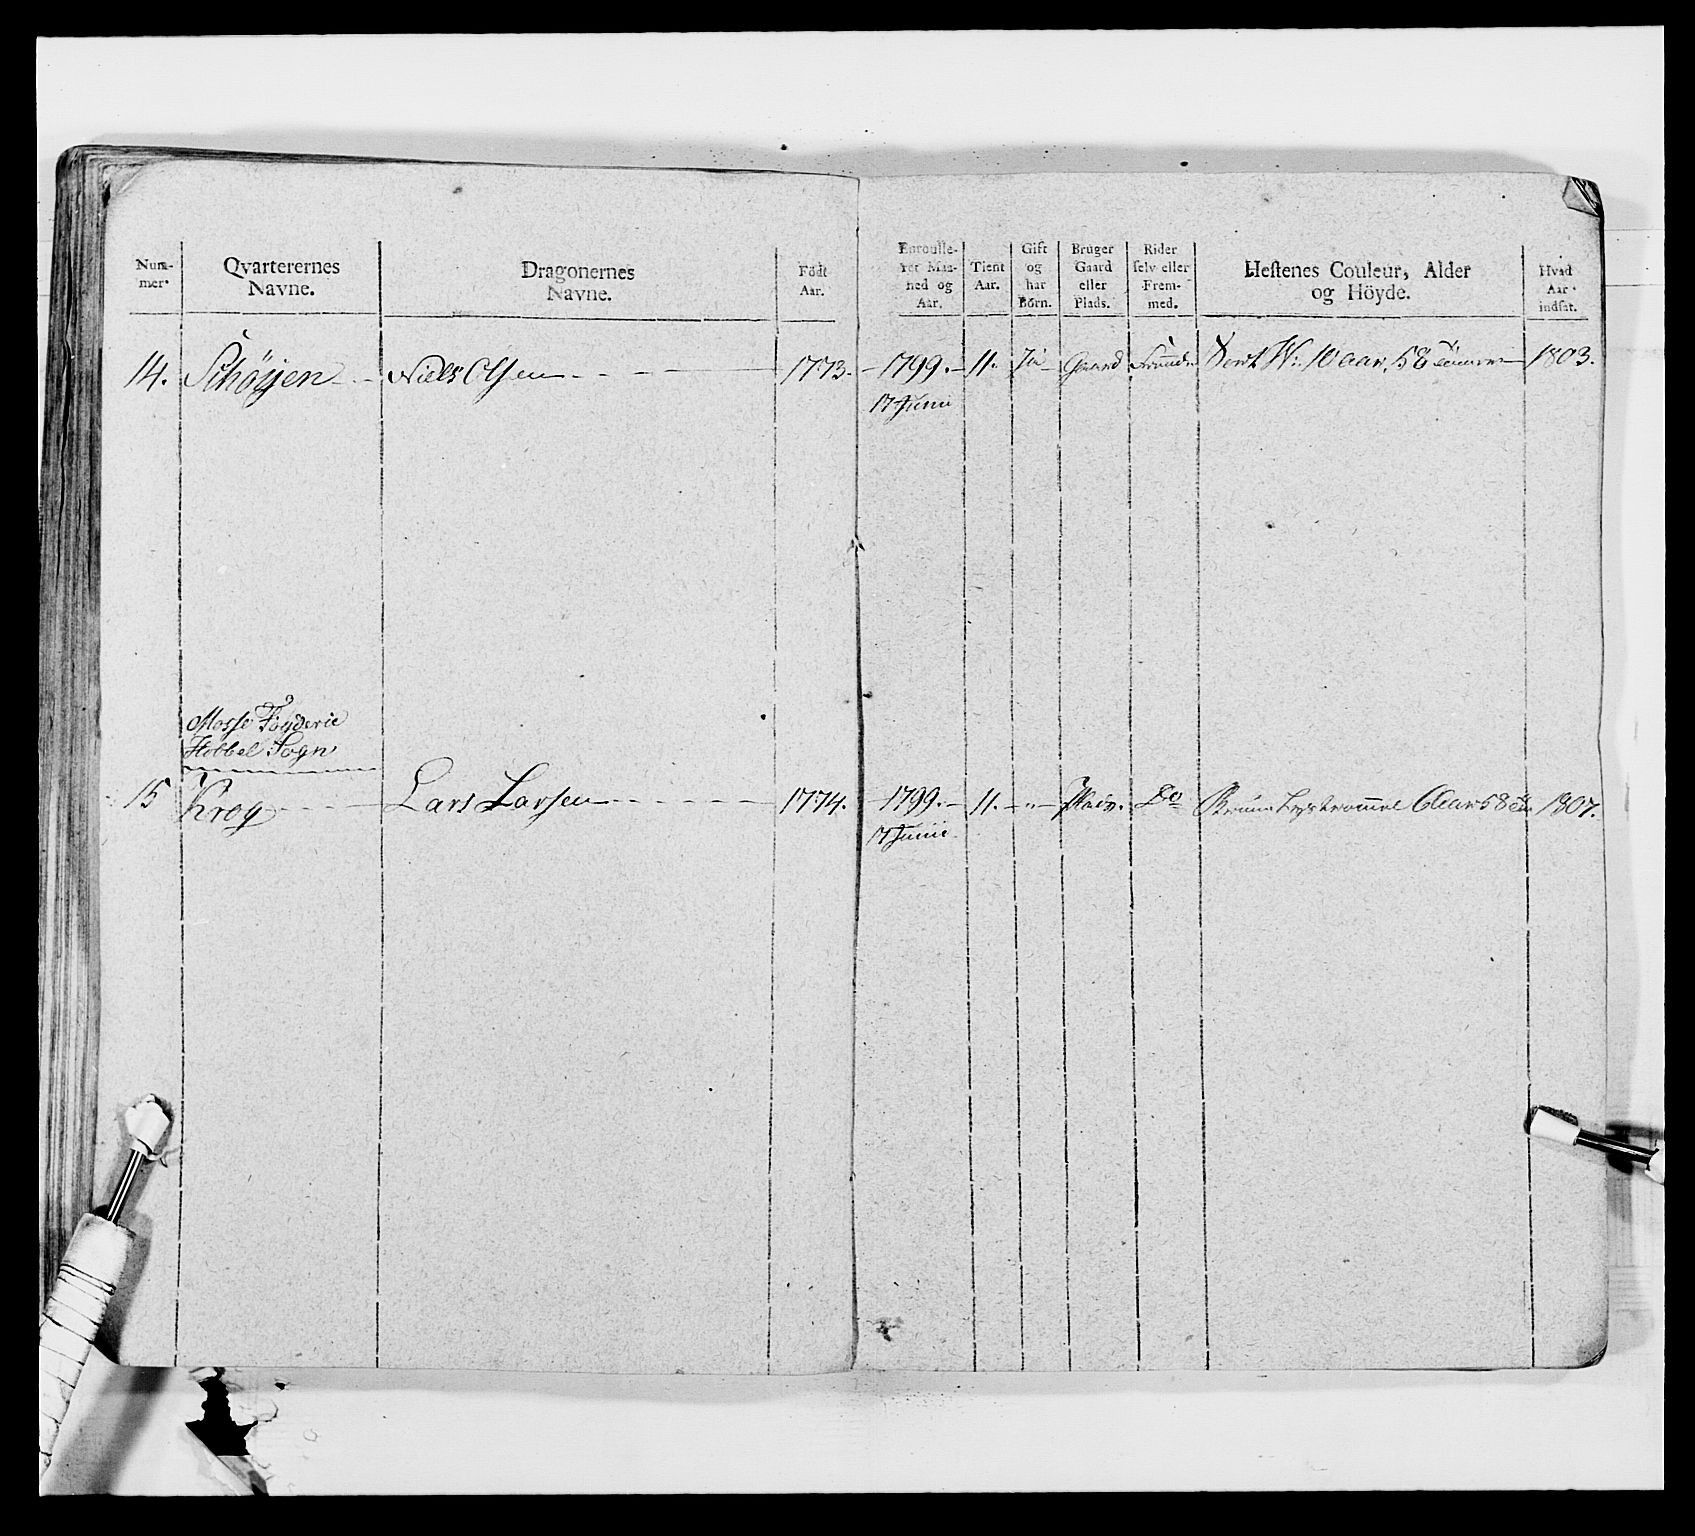 Num-
mer.
Qvarterernes
Navne.
Dragonernes
Navne.
Födt
Aar.
Enroulle-
ret Maa-
ned og
Aar.
Tient
Aar.
Gift
og
har
Börn.
Bruger
Gaard
eller
Plads.
Rider
selv eller
Frem-
med.
Hestenes Couleur, Alder
og Höyde.
Hvad
Aar
indsat.
14. Schöyen Niels Olsen 1773. 1799. 11. Ja Gaard Sort W: 10 aar, 58 1803.
17 Junii
Mosse Fogderie
Hobbel Sogn
15 Krog Lars Larsen 1774. 1799. 11. - " - Plads. Do 6 Aar 58 1807.
17 Junii